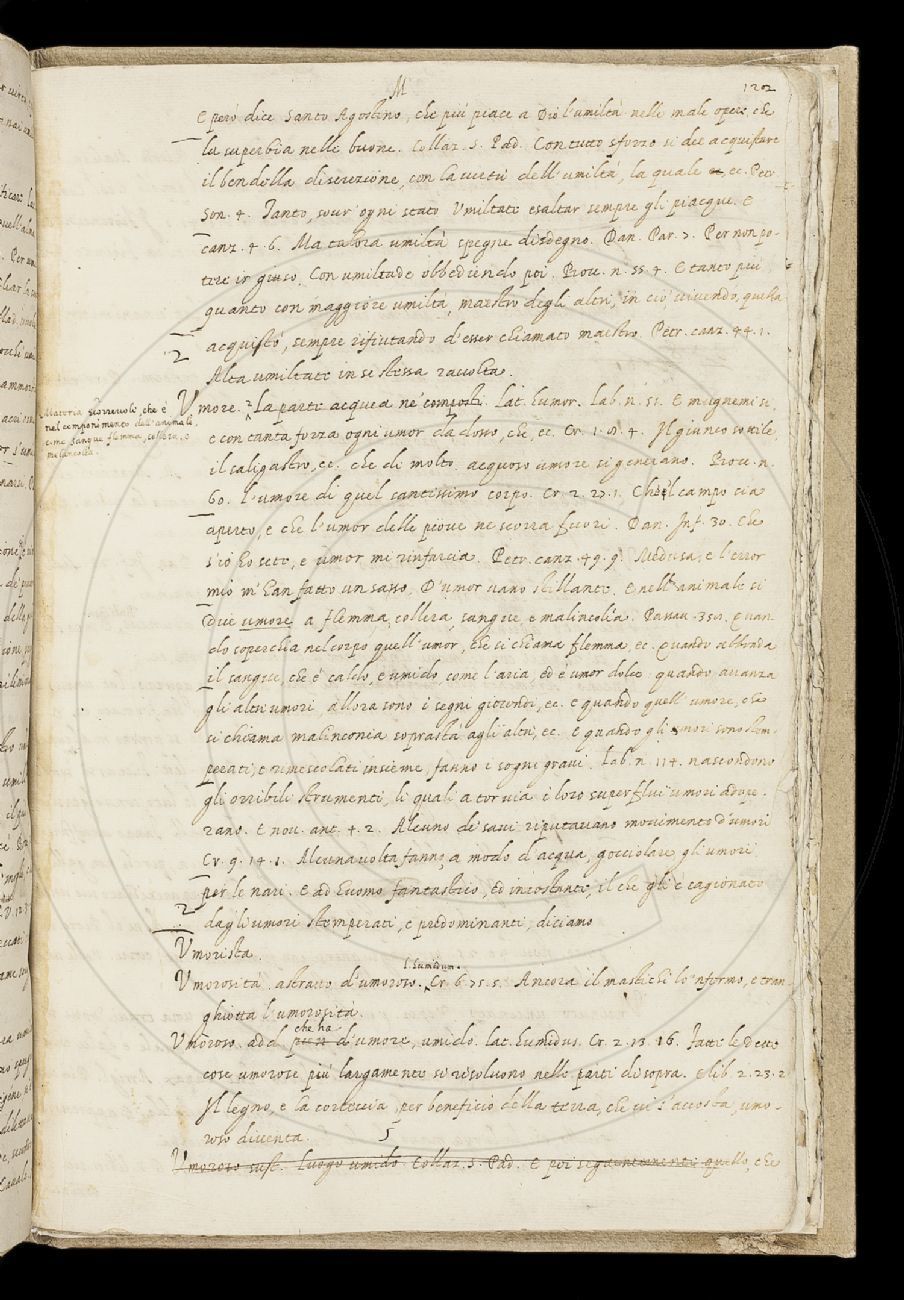 M
1202
E però dice Santo Agostino, che più piace a Dio l'umiltà nelle male opere, che
la superbia nelle buone. Collaz. S. Pad. Con tutto sforzo si dee acquistare
il ben della discrezione, con la vertù dell'umiltà, la quale ec. Petr.
son. 4. Tanto, sovr'ogni stato Umiltate esaltar sempre gli piacque. E
canz. 4. 6. Ma talora umiltà spegne disdegno. Dan. Par. 7. Per non po-
tere ir giuso, Con umiltade obbediendo poi. Bocc. n. 55. 4. E tanto più
quanto con maggiore umiltà, maestro degli altri, in ciò vivendo, quella
acquistò, sempre rifiutando d'esser chiamato maestro. Petr. canz. 44. 1.
2
Alta umiltate in se stessa raccolta.
Materia scorrevole, che è
nel componimento dell'animale
come sangue flemma, collera, e
melancolia.
Umore. 2 La parte acquea ne' composti. Lat. humor. Lab. n. 51. E mugnemi si,
e con tanta forza ogni umor da dosso, che, ec. Cr. 1. 4. Il giunco sottile,
il caligastro, ec. che di molto acquoso umore si generano. Bocc. n.
60. l'umore di quel santissimo corpo. Cr. 2. 23. 1. Che'l campo sia
aperto, e che l'umor delle piove ne scorra fuori. Dan. Inf. 30. Che
s'io ho sete, e umor mi rinfarcia. Petr. canz. 49. 9. Medusa, e l'error
mio m'han fatto un sasso, D'umor vano stillante. E nell'animale si
dice umore, a flemma, collera, sangue, e malinconia. Passav. Quan-
do soperchia nel corpo quell'umor, che si chiama flemma, ec. Quando abbonda
il sangue, che è caldo, e umido, come l'aria, ed è umor dolce. quando avanza
gli altri umori, allora sono i segni giocondi, ec. e quando quell'umore, che
si chiama malinconia soprastà agli altri, ec. e quando gli umori sono stem-
perati, e rimescolati insieme, fanno i sogni gravi. Lab. n. 114. nascondono
gli orribili strumenti, li quali a tor via i loro superflui umori adope-
rano. E nov. ant. 4. 2. Alcuno de' savi riputavano movimento d'umori
Cr. 9. 14. 1. Alcuna volta fanno, a modo d'acqua, gocciolare gli umori
per le nari. E ad huomo fantastico, ed incostante, il che gli è cagionato
2
dagli umori stemperati, e predominanti, diciamo
Umorista.
Umorosità. astratto d'umoroso. l. humidum. Cr. 6. 75. 5. Ancora il mastichi lo'nfermo, e tran-
ghiotta l'umorosità.
Umoroso. add. pien che ha d'umore, umido. lat. humidus. Cr. 2. 13. 16. Tutte le dette
cose umorose più largamente si risolvono nelle parti di sopra. E lib. 2. 23. 2
Il legno, e la corteccia, per beneficio della terra, che vi s'accosta, umo-
roso diventa.
5
Umoroso sust. luogo umido. Collaz. S. Pad. E poi seguentemente quello, che